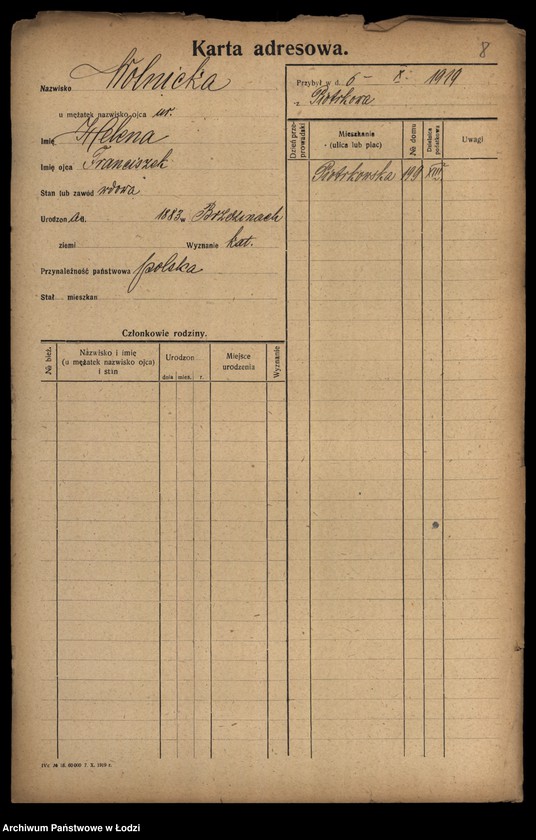 Karta adresowa.
8
Nazwisko Wolnicka
u mężatek nazwisko ojca ur.
Imię Helena
Imię ojca Franciszek
Stan lub zawód wdowa
Urodzon a d. 1883 w Brzezinach
ziemi Wyznanie kat.
Przynależność państwowa polska
Stał. mieszkan.
Członkowie rodziny.
№ bież.
Nazwisko i imię (u mężatek nazwisko ojca) i stan
Urodzon
dnia mies. r.
Miejsce urodzenia
Wyznanie
Przybył w d. 6 - X - 1919
z Piotrkowa
Dzień przeprowadzki
Mieszkanie (ulica lub plac)
№ domu
Dzielnica podatkowa
Uwagi
Piotrkowska 199 XIII
Archiwum Państwowe w Łodzi